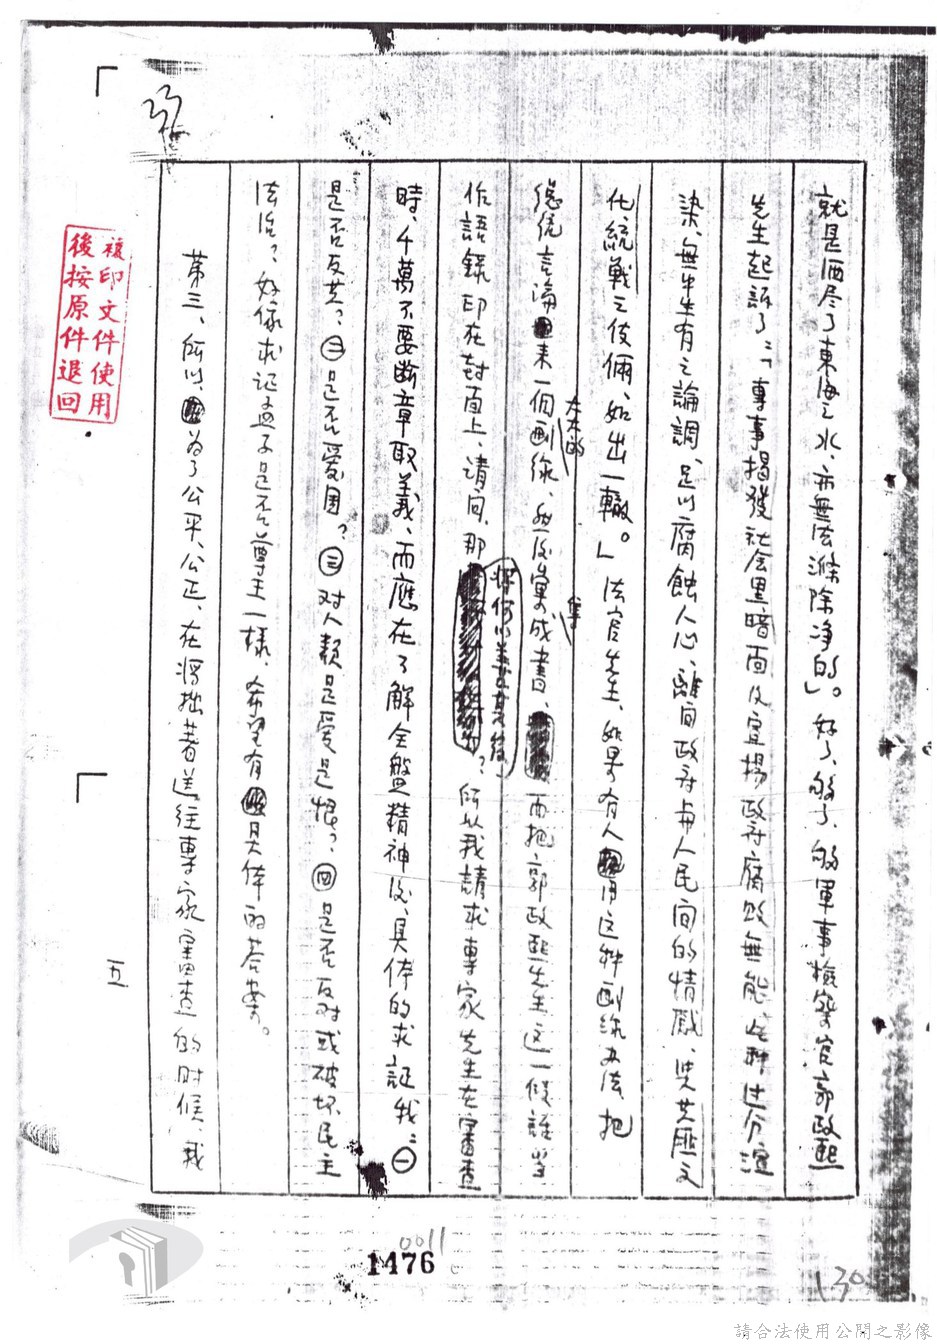 就是洒尽了東海之水、亦無法滌除净的」。好了、够了、够了、軍事檢察官郭政熙
先生起訴了：「專事揭發社会黑暗面及宣揚政府腐敗無能、此种过分渲
染、無中生有之論調、足以腐蝕人心、離间政府与人民间的情感、与共匪文
化統戰之伎倆、如出一轍。」法官先生、如果有人用这种画線办法、把
總統言論來一個大大的画線、然後彙集成書、而把郭政熙先生这一段話当
作語錄印在封面上、请问、那將何以善其後？所以我請求專家先生在審查
時、千萬不要斷章取義、而應在了解全盤精神後、具体的求証我：㊀
是否反共？㊁是否爱国？㊂对人類是爱是恨？㊃是否反对或破坏民主
法治？好像求证孟子是否尊王一樣、希望有具体的答案。
第三、所以、为了公平、公正、在將拙著送往專家審查的时候、我
五
複印文件使用
後按原件退回
0011
1476
130
請合法使用公開之影像